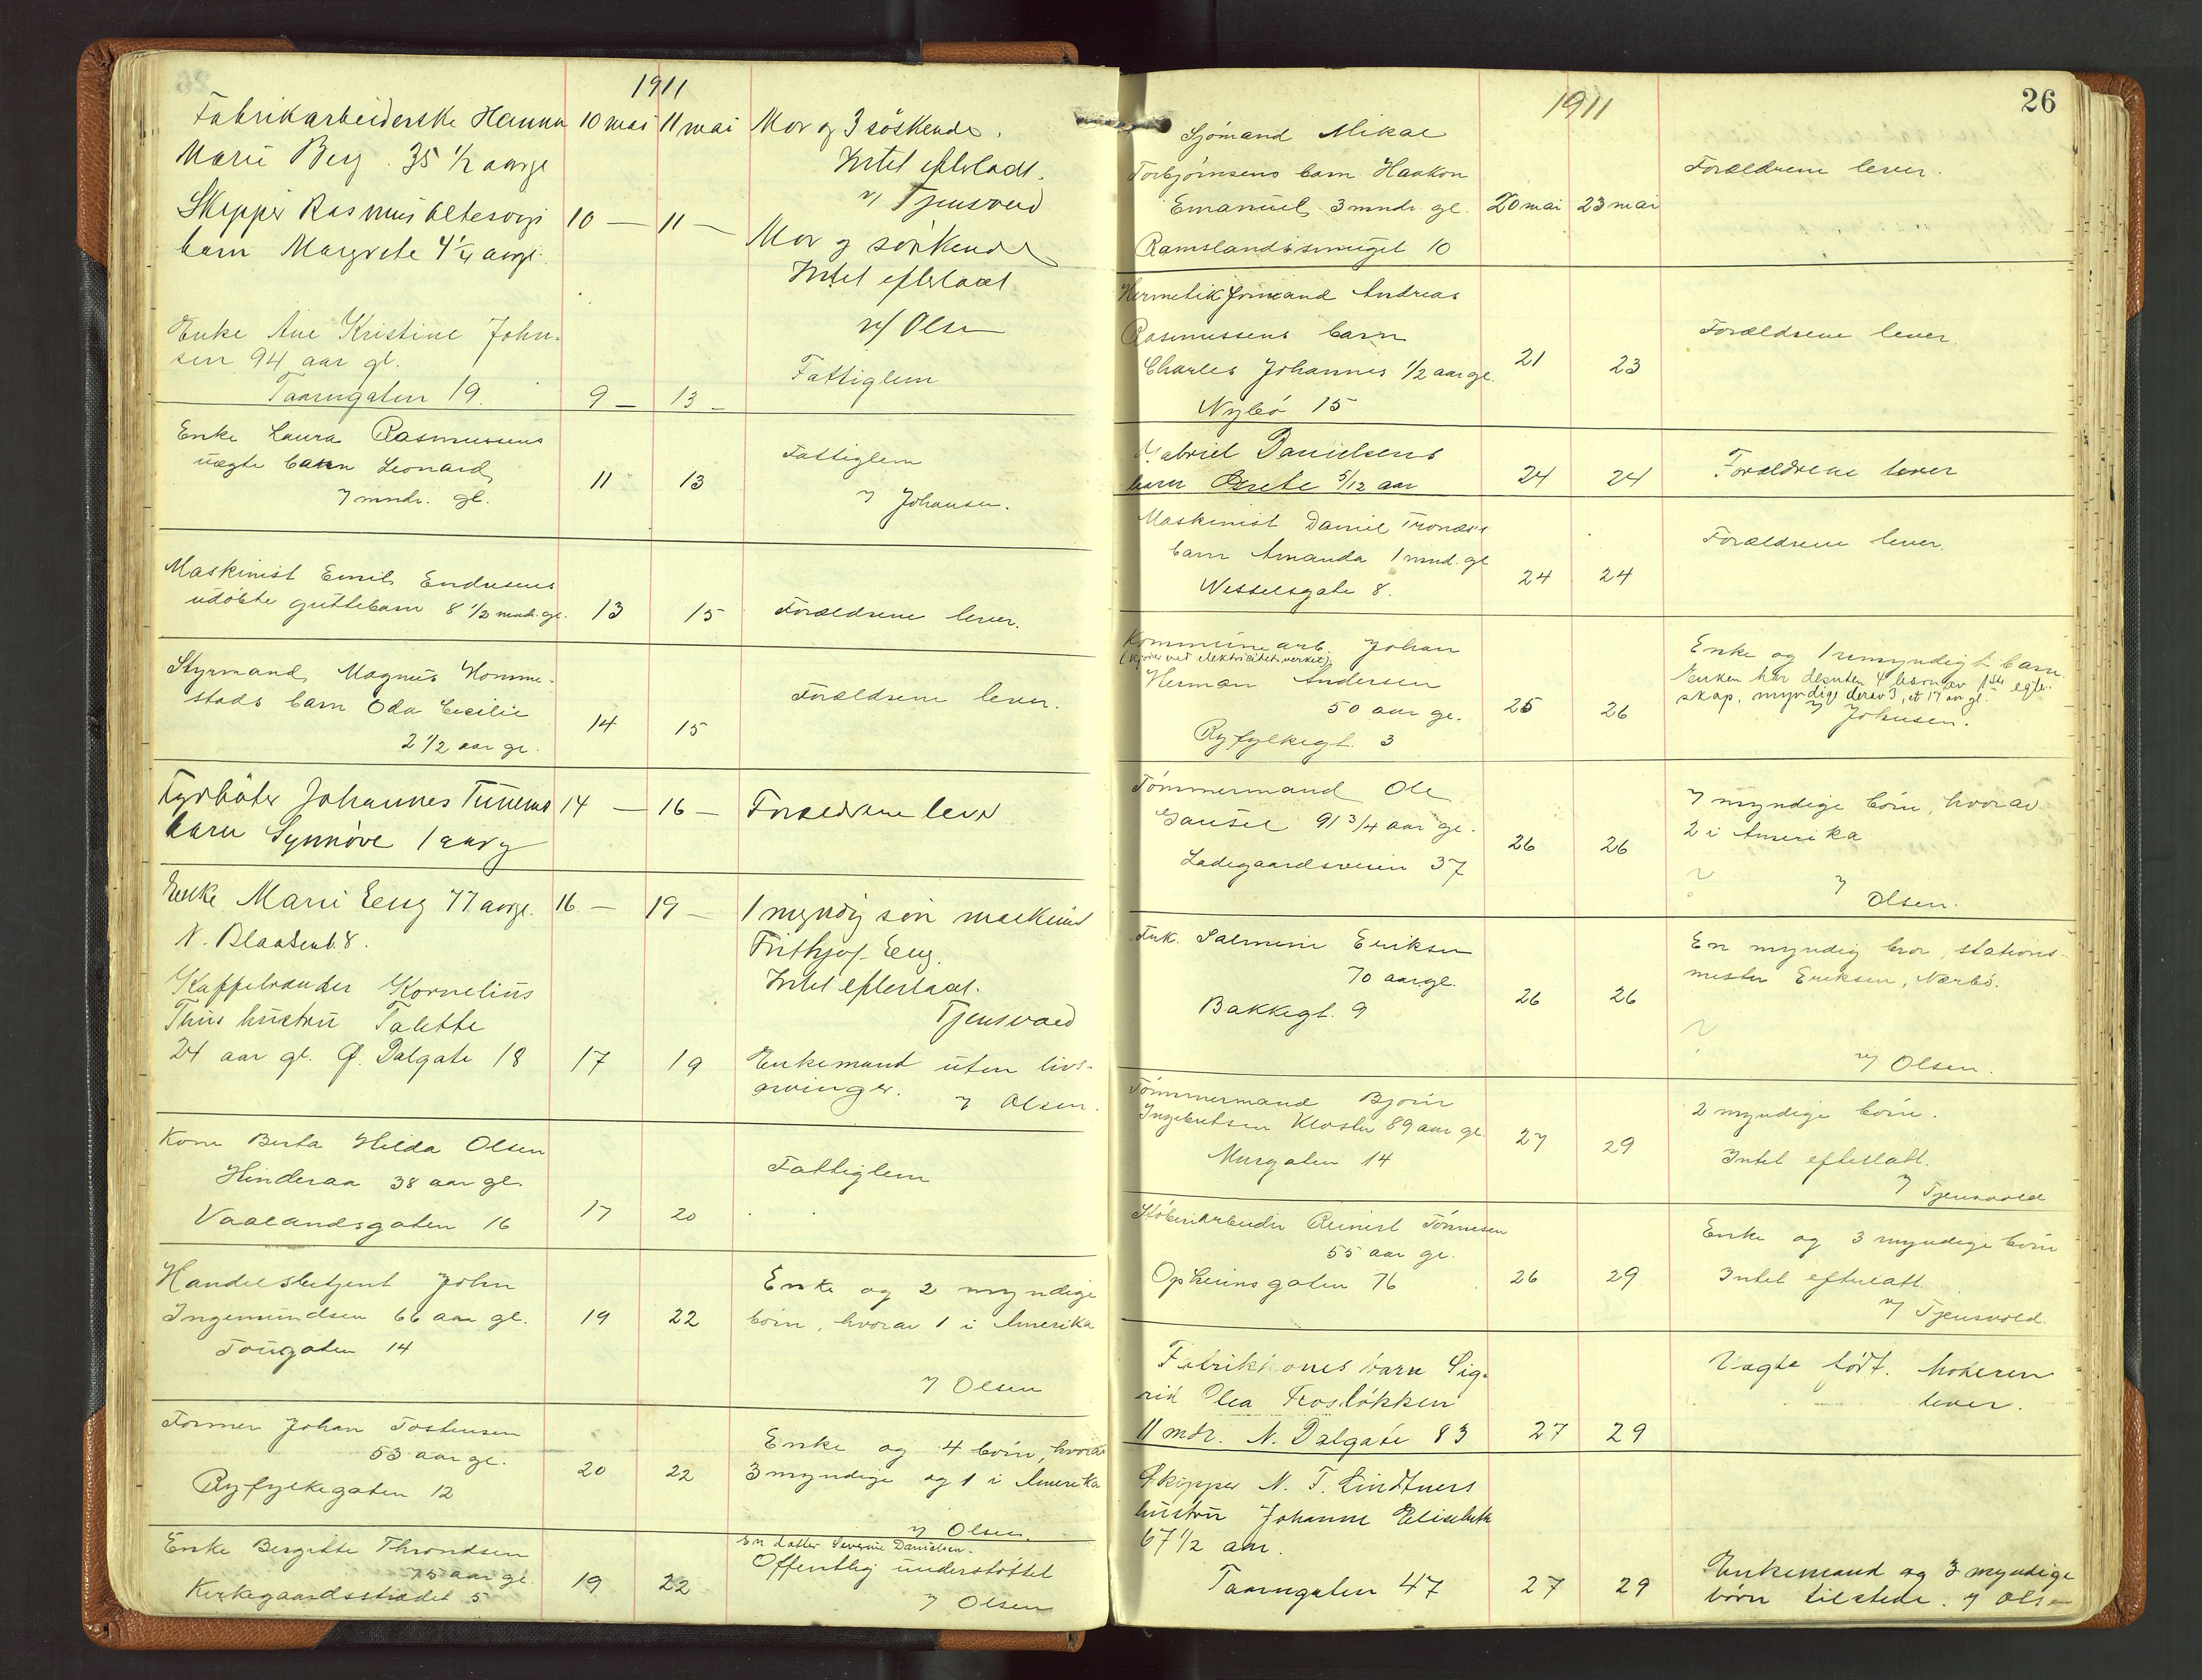 1911
Fabrikarbeiderske Hanna 10 mai 11 mai Mor og 3 söskende.
Marie Berg. 35 1/2 aarge Intet efterladt.
v/ Tjensvold
Skipper Rasmus barn Margrete 4 1/4 aarge. 10 — 11 — Mor og söskende
Intet efterladt
v/ Olsen
Enke Ane Kristine John-
sen 94 aar gl.
Taarngaten 19. 9 — 13 — Fattiglem
Enke Laura Rasmussens
uegte barn Leonard 11 13 Fattiglem
7 mndr. gl. v/ Johansen.
Maskinist Emil Endresens
udöbte guttebarn 8 1/2 mndr. gl. 13 15 Forældrene lever.
Styrmand Magnus Homme-
stads barn Oda Cecilie 14 15 Forældrene lever.
2 1/2 aar gl.
Fyrböter Johannes Tunems 14 — 16 — Forældrene lever
barn Synnöve 1 aarg
Enke Marie Eeg 77 aarge. 16 — 19 — 1 myndig sön maskinist
N. Blaasenb. 8. Frithjof Eeg.
Intet efterladt.
Tjensvold
Kaffebrænder Kornelius
Thus hustru Talette
24 aar gl. Ø. Dalgate 18 17 19 Enkemand uten livs-
arvinger. v/ Olsen.
Kone Berta Hilda Olsen
Hinderaa 38 aar gl. Fattiglem
Vaalandsgaten 16 17 20
Handelsbetjent John Enke og 2 myndige
Ingemundsen 66 aar gl. 19 22 börn, hvorav 1 i Amerika
Tougaten 14
v/ Olsen
Former Johan Tostensen
53 aar gl. Enke og 4 börn, hvorav
Ryfylkegaten 12 20 22 3 myndige og 1 i Amerika
v/ Olsen.
Enke Bergitte Throndsen En datter Severine Danielsen.
75 aar gl. 19 22 Offentlig understöttet
Kirkegaardsstrædet 5 v/ Olsen
26
1911
Sjömand Mikal
Torbjörnsens barn Haakon Forældrene lever.
Emanuel 3 mndr. gl. 20 mai 23 mai
Ramslandssmuget 10
Hermetikformand Andreas
Rasmussens barn Forældrene lever.
Charles Johannes 1/2 aar gl. 21 23
Nybö 15
Gabriel Danielsens
barn Grete 5/12 aar 24 24 Forældrene lever
Maskinist Daniel Tronæs's
barn Amanda 1 mnd. gl 24 24 Forældrene lever.
Wesselsgate 8.
Kommunearb. Johan Enke og 1 umyndigt barn.
(kjörer ved elektricitetsverket) Enken har desuten 4 barn av 1ste egte-
Herman Andersen skap, myndige derav 3, et 17 aar gl.
50 aar gl. 25 26 v/ Johnsen.
Ryfylkegt. 3
Tömmermand Ole 7 myndige börn, hvorav
Gausel 91 3/4 aar gl. 26 26 2 i Amerika
Ladegaardsveien 37
v/ Olsen.
Frk. Salmine Eriksen En myndig bror, stations-
70 aar gl. mester Eriksen, Nærbö.
Bakkegt. 9 26 26
v/ Olsen.
Tömmermand Björn 2 myndige börn.
Ingebretsen Kloster 89 aar gl. 27 29 Intet efterlatt.
Murgaten 14 v/ Tjensvold
Stöberiarbeider Reinert Tönnesen Enke og 3 myndige börn
55 aar gl.
Opheimsgaten 76 26 29 Intet efterlatt.
v/ Tjensvold.
Fabrikkones barn Sig- Uegte födt. Moderen
rid Olea Frosløkken lever.
11 mdr. N. Dalgate 83 27 29
Skipper N. T. Lindtners
hustru Johanne Elisabeth
67 1/2 aar. Enkemand og 3 myndige
Taarngaten 47 27 29 börn tilstede. v/ Olsen